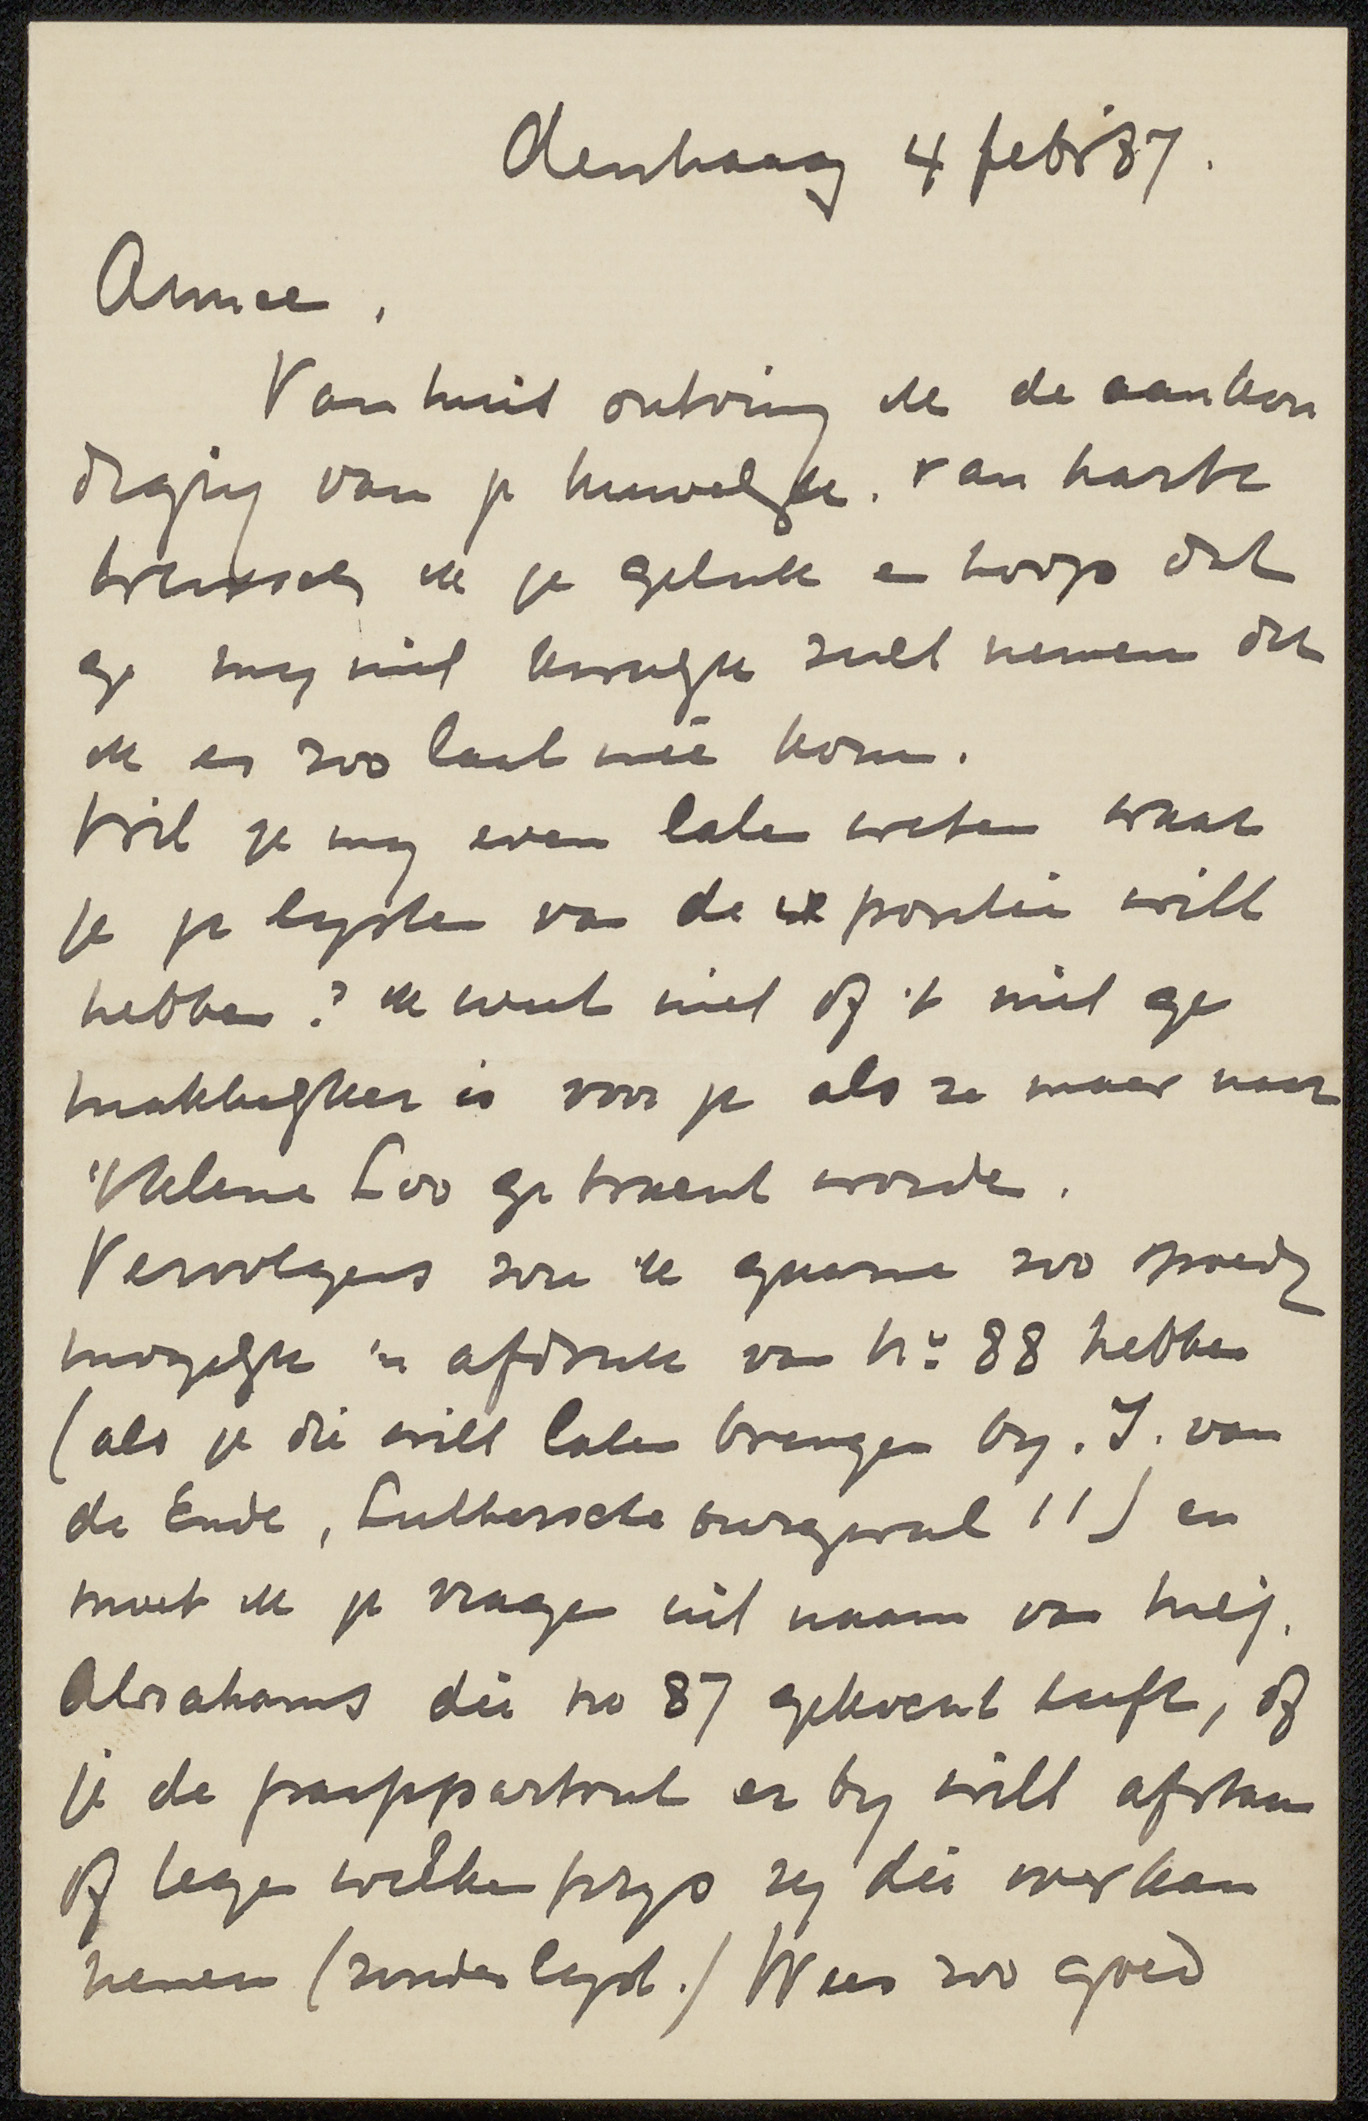 den haag 4 febr '87.
Amice,
Van huis ontving ik de aankon
diging van je huwelijk. van harte
wensch ik je geluk en hoop dat
ge mij niet kwalijk zult nemen dat
ik er zoo laat mêe kom.
Wil je mij even laten weten waar
je je lijsten van de expositie wilt
hebben? ik weet niet of 't niet ge
makkelijker is voor je als ze maar naar
Loo gebracht worden.
Vervolgens zou ik gaarne zoo spoedig
mogelijk 'n afdruk van No: 88 hebben
(als je die wilt laten brengen bij. J. van
de Ende, Luthersche burgwal 11) en
moet ik je vragen uit naam van mej.
Abrahams die no 87 gekocht heeft, of
je de passepartout er bij wilt afstaan
of tegen welken prijs zij die over kan
nemen (zonder lijst.) Wees zoo goed